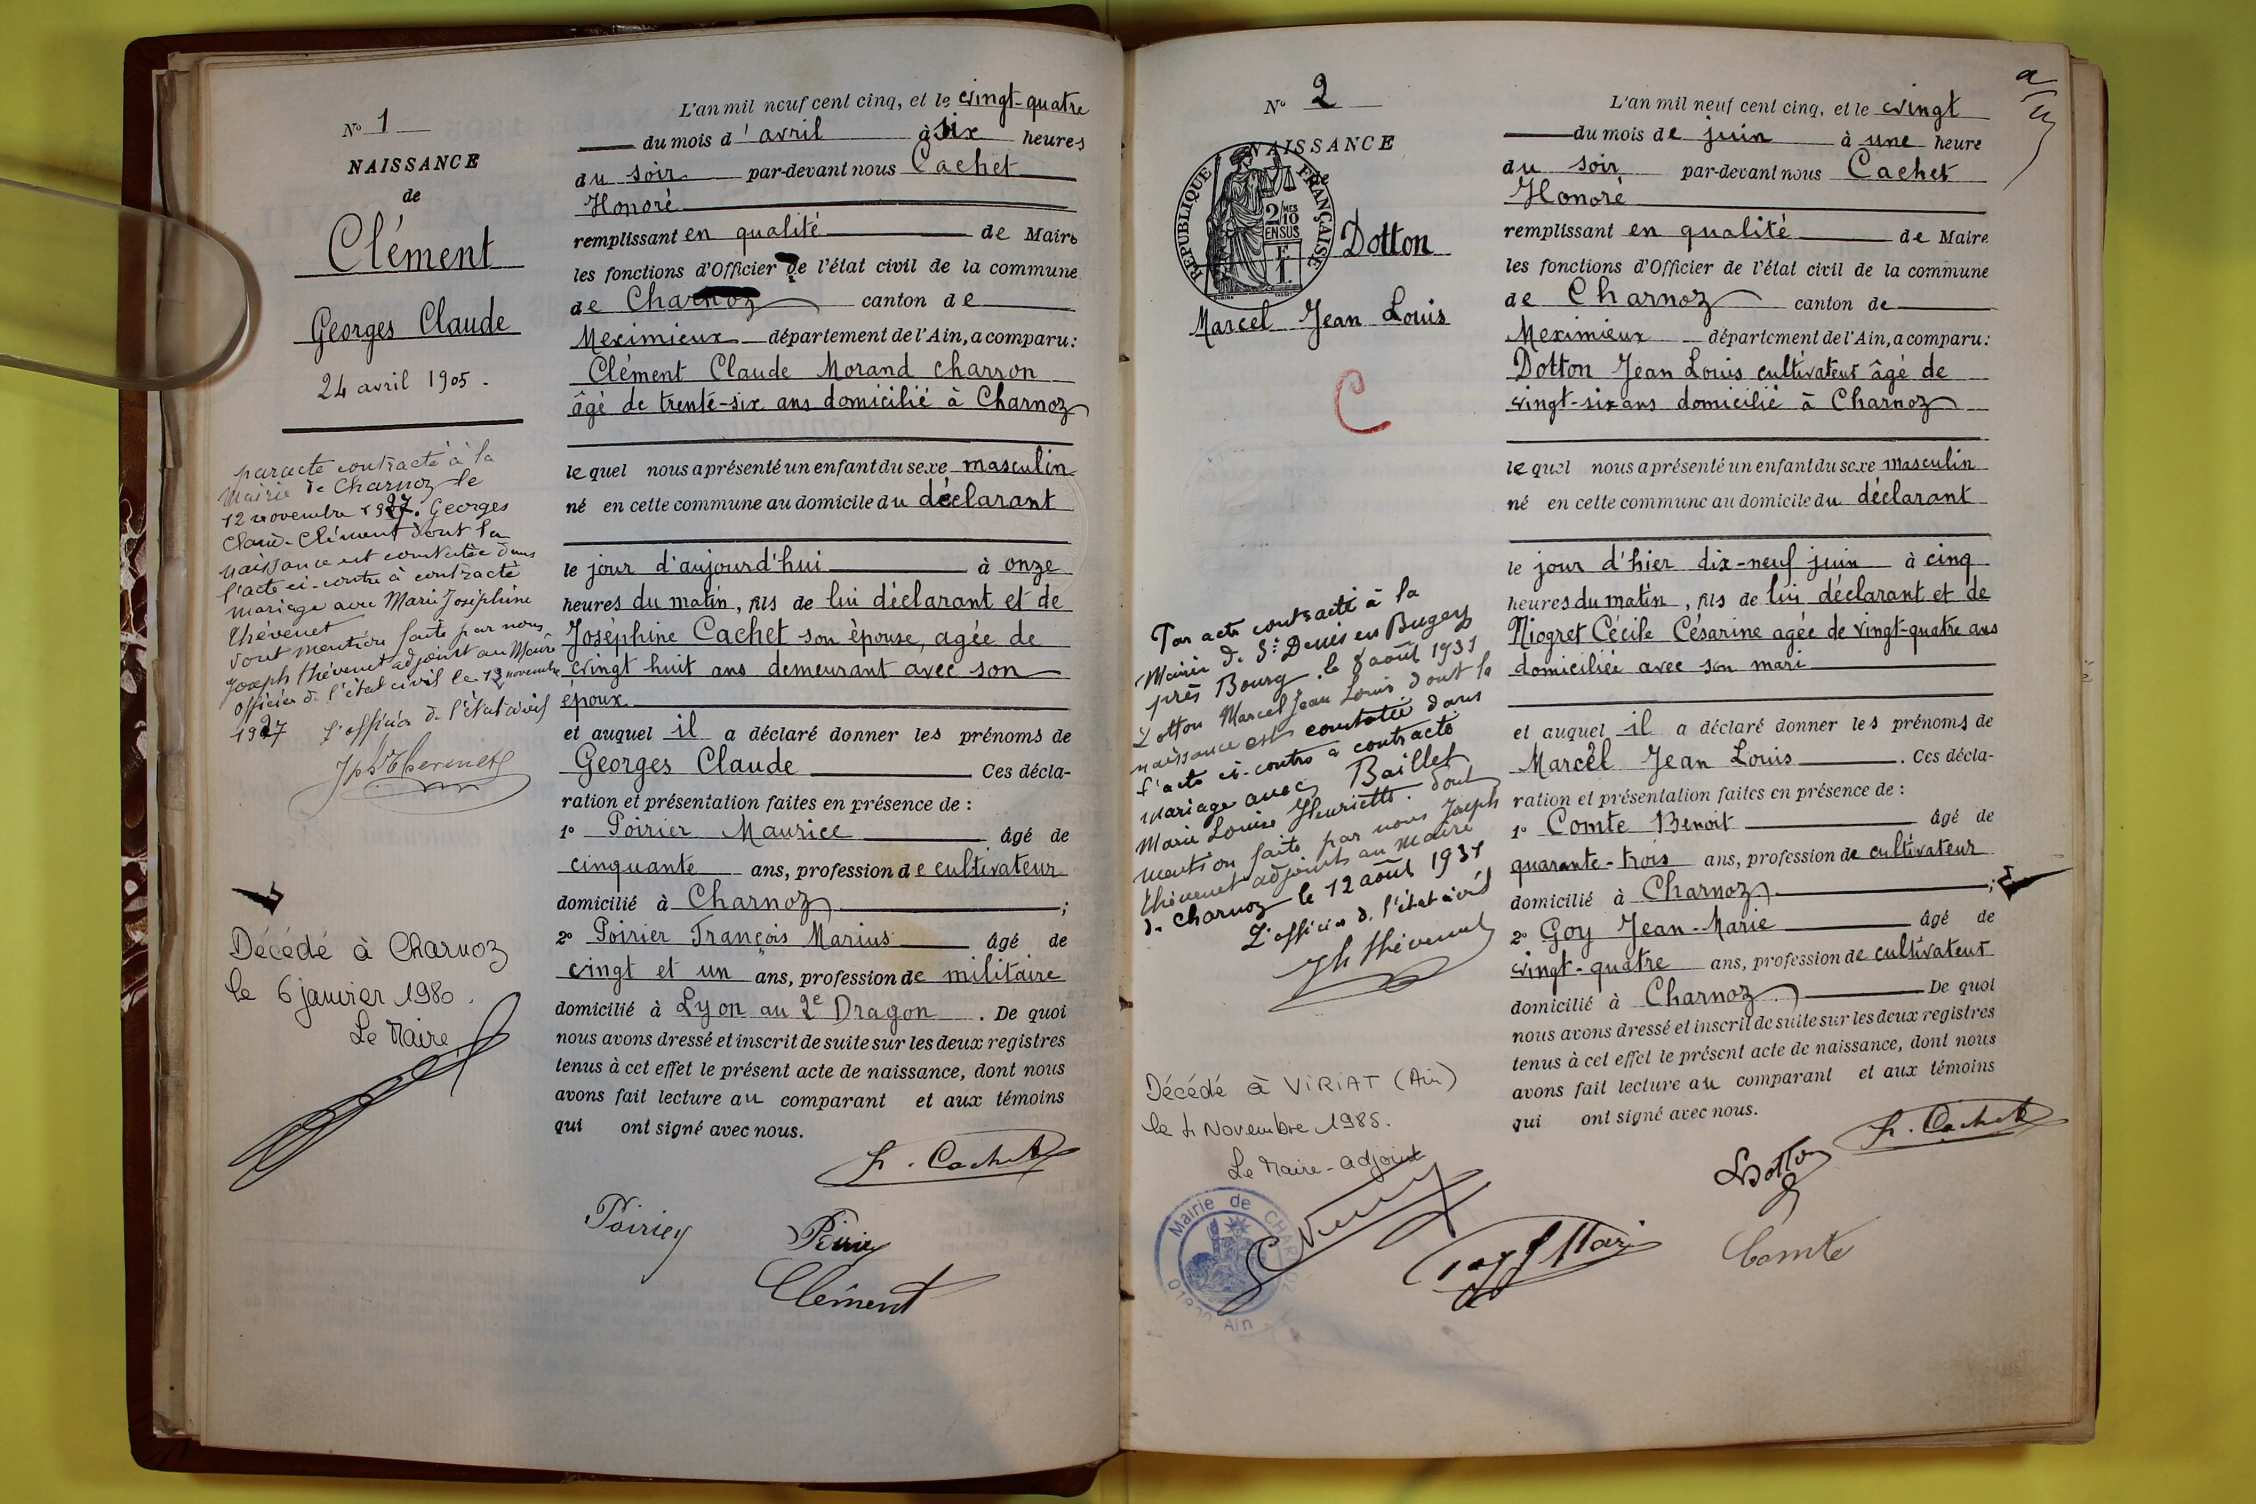 N° 1
NAISSANCE
de
Clément
Georges Claude
24 avril 1905.
par acte contracté à la
Mairie de Charnoz le
12 novembre 1927. Georges
Claude Clément dont la
naissance est constatée dans
l'acte ci-contre à contracté
mariage avec Marie Joséphine
Thévenet
dont mention faite par nous
Joseph Thévenet adjoint au Maire
officier de l'état civil le 13 novembre
1927 l'officier de l'état civil
Jph Thevenet
Décédé à Charnoz
le 6 janvier 1980.
Le Maire
L'an mil neuf cent cinq, et le vingt-quatre
du mois d'avril à six heures
du soir par-devant nous Cachet
Honoré
remplissant en qualité de Maire
les fonctions d'Officier de l'état civil de la commune
de Charnoz canton de
Meximieux département de l'Ain, a comparu:
Clément Claude Morand charron
âgé de trente-six ans domicilié à Charnoz
lequel nous a présenté un enfant du sexe masculin
né en cette commune au domicile du déclarant
le jour d'aujourd'hui à onze
heures du matin, fils de lui déclarant et de
Joséphine Cachet son épouse, agée de
vingt huit ans demeurant avec son
époux
et auquel il a déclaré donner les prénoms de
Georges Claude Ces décla-
ration et présentation faites en présence de :
1° Poirier Maurice âgé de
cinquante ans, profession de cultivateur
domicilié à Charnoz ;
2° Poirier François Marius âgé de
vingt et un ans, profession de militaire
domicilié à Lyon au 2e Dragon . De quoi
nous avons dressé et inscrit de suite sur les deux registres
tenus à cet effet le présent acte de naissance, dont nous
avons fait lecture au comparant et aux témoins
qui ont signé avec nous.
h. Cachet
Poirier Poirier
Clément
N° 2
NAISSANCE
de
RÉPUBLIQUE FRANÇAISE
2/10MES
EN SUS
F
1
Dotton
Marcel Jean Louis
C
Par acte contracté à la
Mairie de St Denis en Bugey
près Bourg. le 8 août 1931
Dotton Marcel Jean Louis dont la
naissance est constatée dans
l'acte ci-contre à contracté
mariage avec Baillet
Marie Louise Henriette. dont
mention faite par nous Joseph
Thévenet adjoint au maire
de Charnoz le 12 août 1931
L'officier de l'état civil
Jh Thévenet
Décédé à VIRIAT (Ain)
le 4 Novembre 1985.
Le Maire-adjoint
Mairie de CHARNOZ
Ain
L'an mil neuf cent cinq, et le vingt
du mois de juin à une heure
du soir par-devant nous Cachet
Honoré
remplissant en qualité de Maire
les fonctions d'Officier de l'état civil de la commune
de Charnoz canton de
Meximieux département de l'Ain, a comparu:
Dotton Jean Louis cultivateur âgé de
vingt-six ans domicilié à Charnoz
lequel nous a présenté un enfant du sexe masculin
né en cette commune au domicile du déclarant
le jour d'hier dix-neuf juin à cinq
heures du matin, fils de lui déclarant et de
Niogret Cécile Césarine agée de vingt-quatre ans
domiciliée avec son mari
et auquel il a déclaré donner les prénoms de
Marcel Jean Louis . Ces décla-
ration et présentation faites en présence de :
1° Comte Benoit âgé de
quarante-trois ans, profession de cultivateur
domicilié à Charnoz ;
2° Goy Jean-Marie âgé de
vingt-quatre ans, profession de cultivateur
domicilié à Charnoz De quoi
nous avons dressé et inscrit de suite sur les deux registres
tenus à cet effet le présent acte de naissance, dont nous
avons fait lecture au comparant et aux témoins
qui ont signé avec nous.
h. Cachet
Dotton
Comte